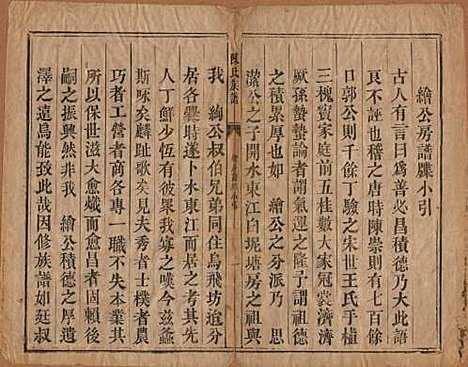 繪公房譜牒小引
古人有言曰為善必昌積德乃大此語
良不誣也稽之唐時陳崇則有七百餘
口郭公則千餘丁驗之宋世王氏手付
三槐竇家庭前五桂數大家冠裳濟濟
厥孫蟄蟄論者謂氣運之隆予謂祖德
之積累應如此 繪公之分派乃 思
潔公之子開水東江白坭塘房之祖與
陳氏族譜
我 絢公叔伯兄弟同住烏飛坊之祖
居各爨時遂卜水東江而居之者其先
人丁鮮少恆有彼眾我寡之嘆今茲螽
斯咏矣麟趾歌矣見夫秀者士樸者農
巧者工營者商各專一職不失本業其
所以保世滋大愈熾而昌固賴後
嗣之振興然非我 繪公積德之厚遺
澤之遠烏能致此哉因修族譜如廷叔